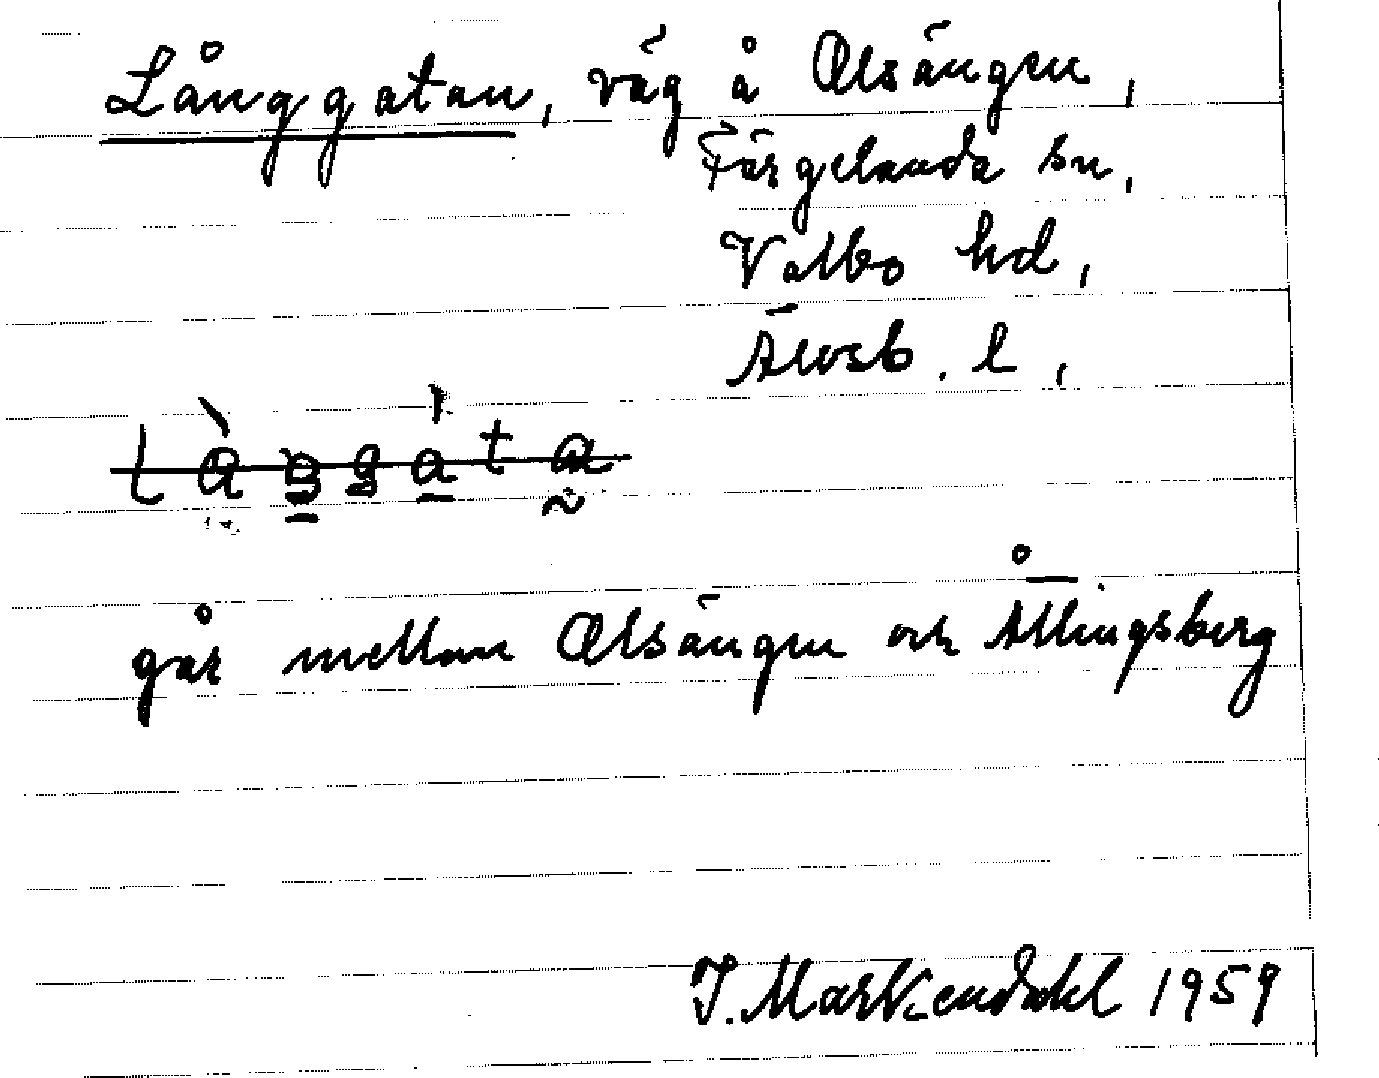 Långgatan, väg å Alsängen,
Färgelanda sn,
Valbo hd,
Älvsb. l,
går mellan Alsängen och Ållingsberg
J. Markendahl 1959